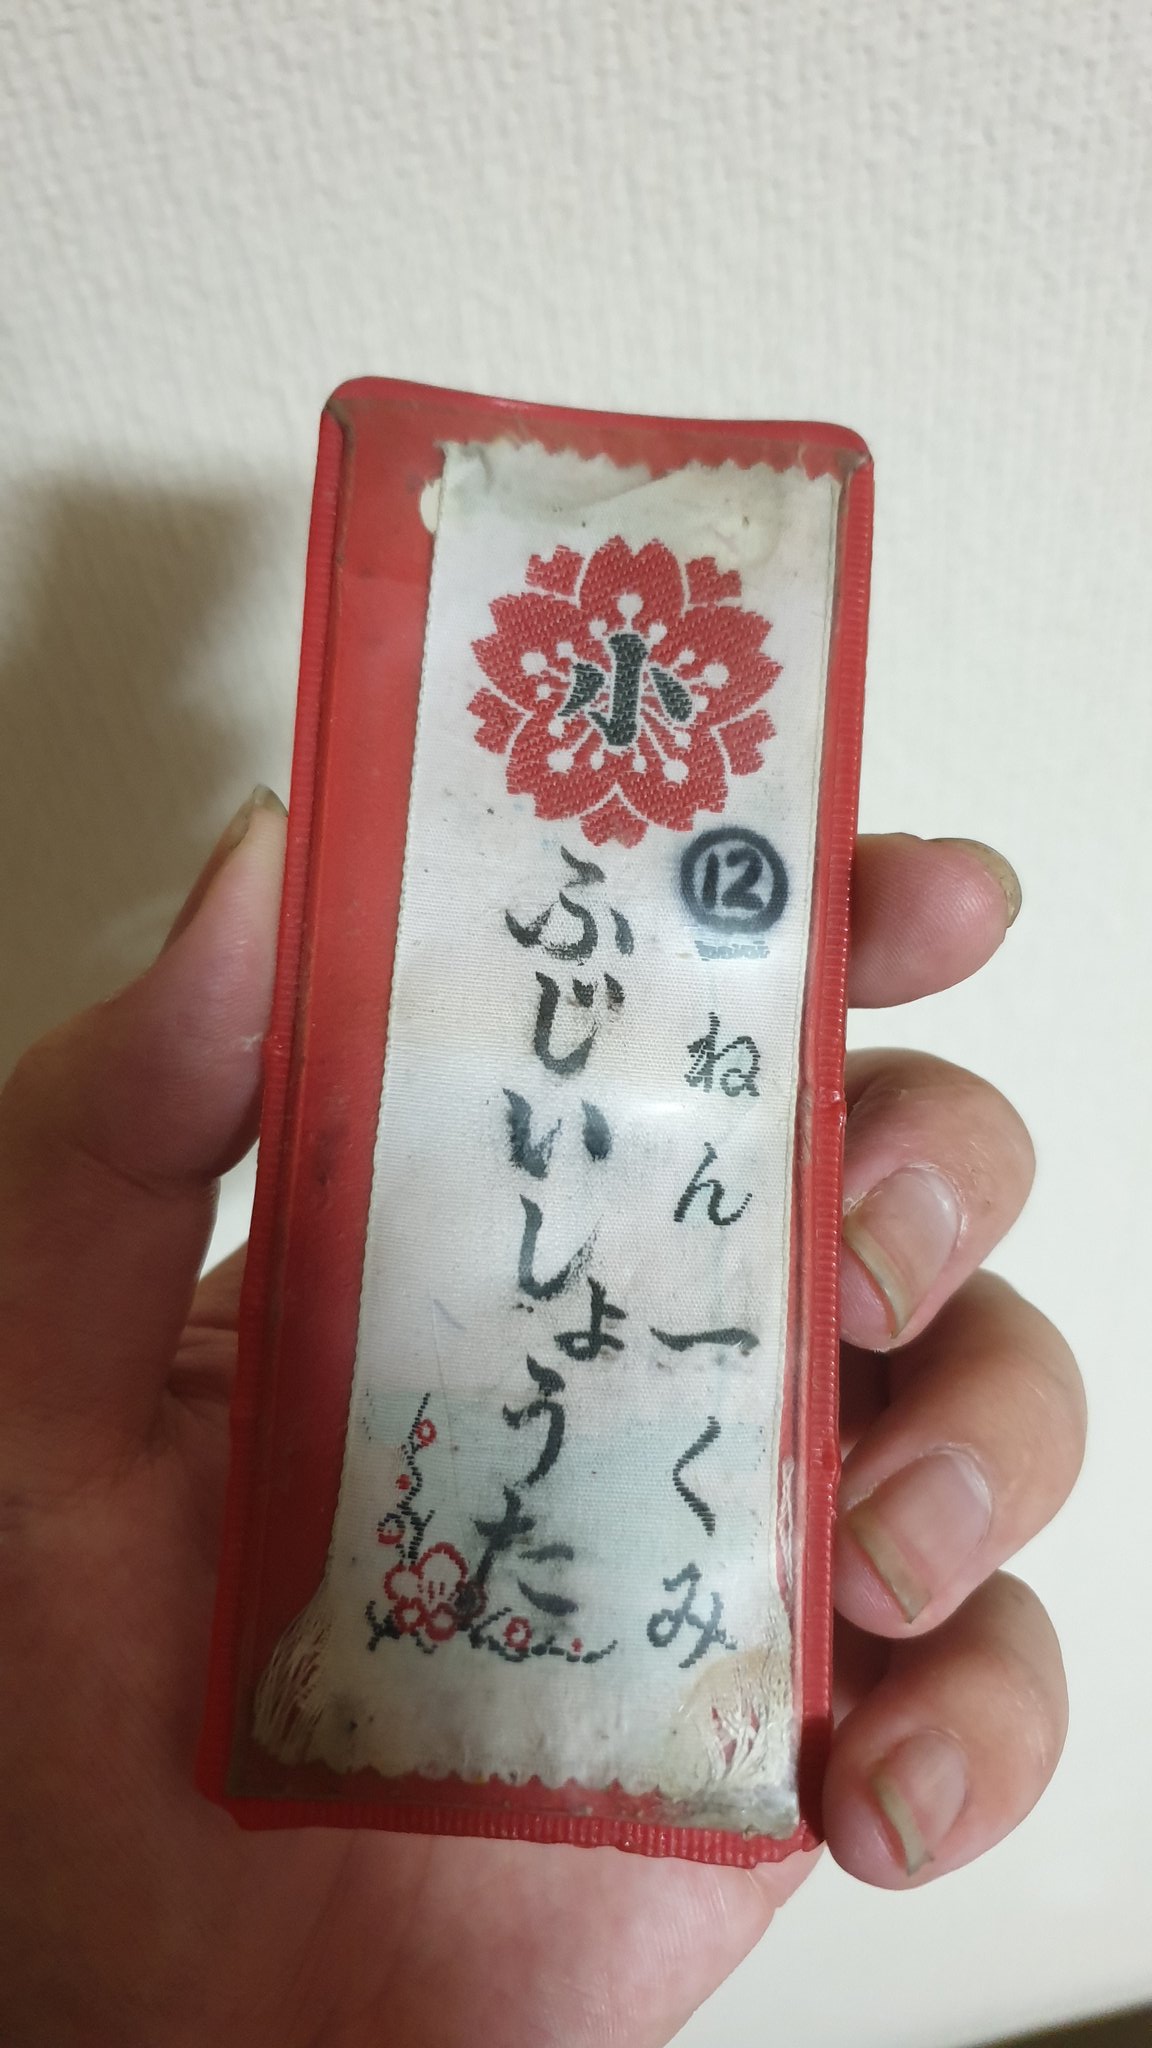 小
⑫
ねん一くみ
ふじいしょうた